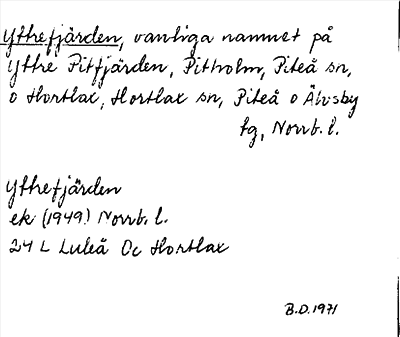 Yttrefjärden, vanliga namnet på
Yttre Pitfjärden, Pitholm, Piteå sn,
o Hortlax, Hortlax sn, Piteå o Älvsby
tg, Norrb. l.
Yttrefjärden
ek (1949) Norrb. l.
24 L Luleå Oc Hortlax
B.D. 1971